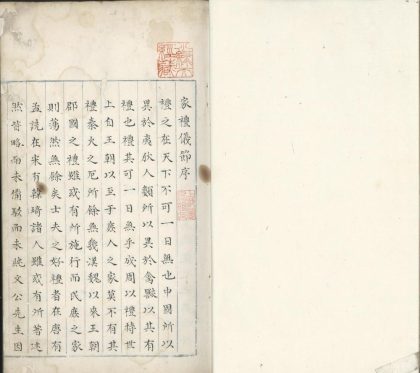 家禮儀節序
禮之在天下不可一日無也中國所以
異於夷狄人類所以異於禽獸以其有
禮也禮其可一日無乎成周以禮持世
上自王朝以至于庶人之家莫不有其
禮秦火之厄所餘無幾漢魏以來王朝
郡國之禮雖或有所施行而民庶之家
則蕩然無餘矣士夫之好禮者在唐有
孟詵在宋有韓琦諸人雖或有所著述
然皆略而未備駁而未純文公先生因